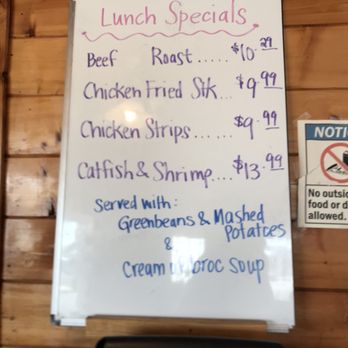 Lunch Specials
Beef Roast..... $10.29
Chicken Fried Stk... $9.99
Chicken Strips...... $9.99
Catfish & Shrimp.... $13.99
Served with:
Greenbeans & Mashed
Potatoes
&
Cream of broc Soup
NOTI
No outsid
food or d
allowed.